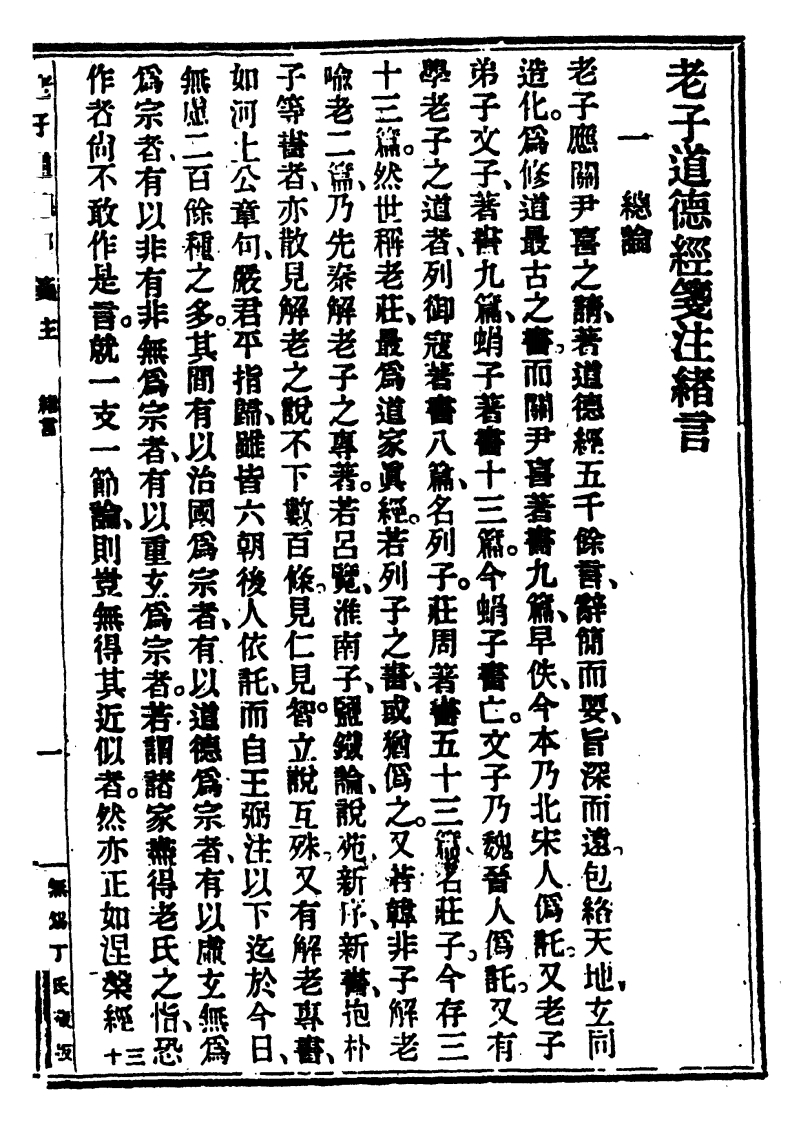 老子道德經箋注緒言
一 總論
老子應關尹喜之請、著道德經五千餘言、辭簡而要、旨深而遠。包絡天地、玄同
造化。爲修道最古之書。而關尹喜著書九篇、早佚、今本乃北宋人僞託。又老子
弟子文子、著書九篇、蜎子著書十三篇。今蜎子書亡。文子乃魏晉人僞託。又有
學老子之道者、列御寇著書八篇、名列子。莊周著書五十三篇、名莊子、今存三
十三篇。然世稱老莊、最爲道家眞經。若列子之書、或猶僞之。又若韓非子解老
喻老二篇、乃先秦解老子之專著。若呂覽、淮南子、鹽鐵論、說苑、新序、新書、抱朴
子等書者、亦散見解老之說不下數百條。見仁見智。立說互殊。又有解老專書、
如河上公章句、嚴君平指歸、雖皆六朝後人依託、而自王弼注以下迄於今日、
無慮二百餘種之多。其間有以治國爲宗者、有以道德爲宗者、有以虛玄無爲
爲宗者、有以非有非無爲宗者、有以重玄爲宗者。若謂諸家燕得老氏之恉、恐
作者尙不敢作是言。就一支一節論、則豈無得其近似者。然亦正如涅槃經三十
老子道德 箋注 緒言 一 無錫丁氏 版